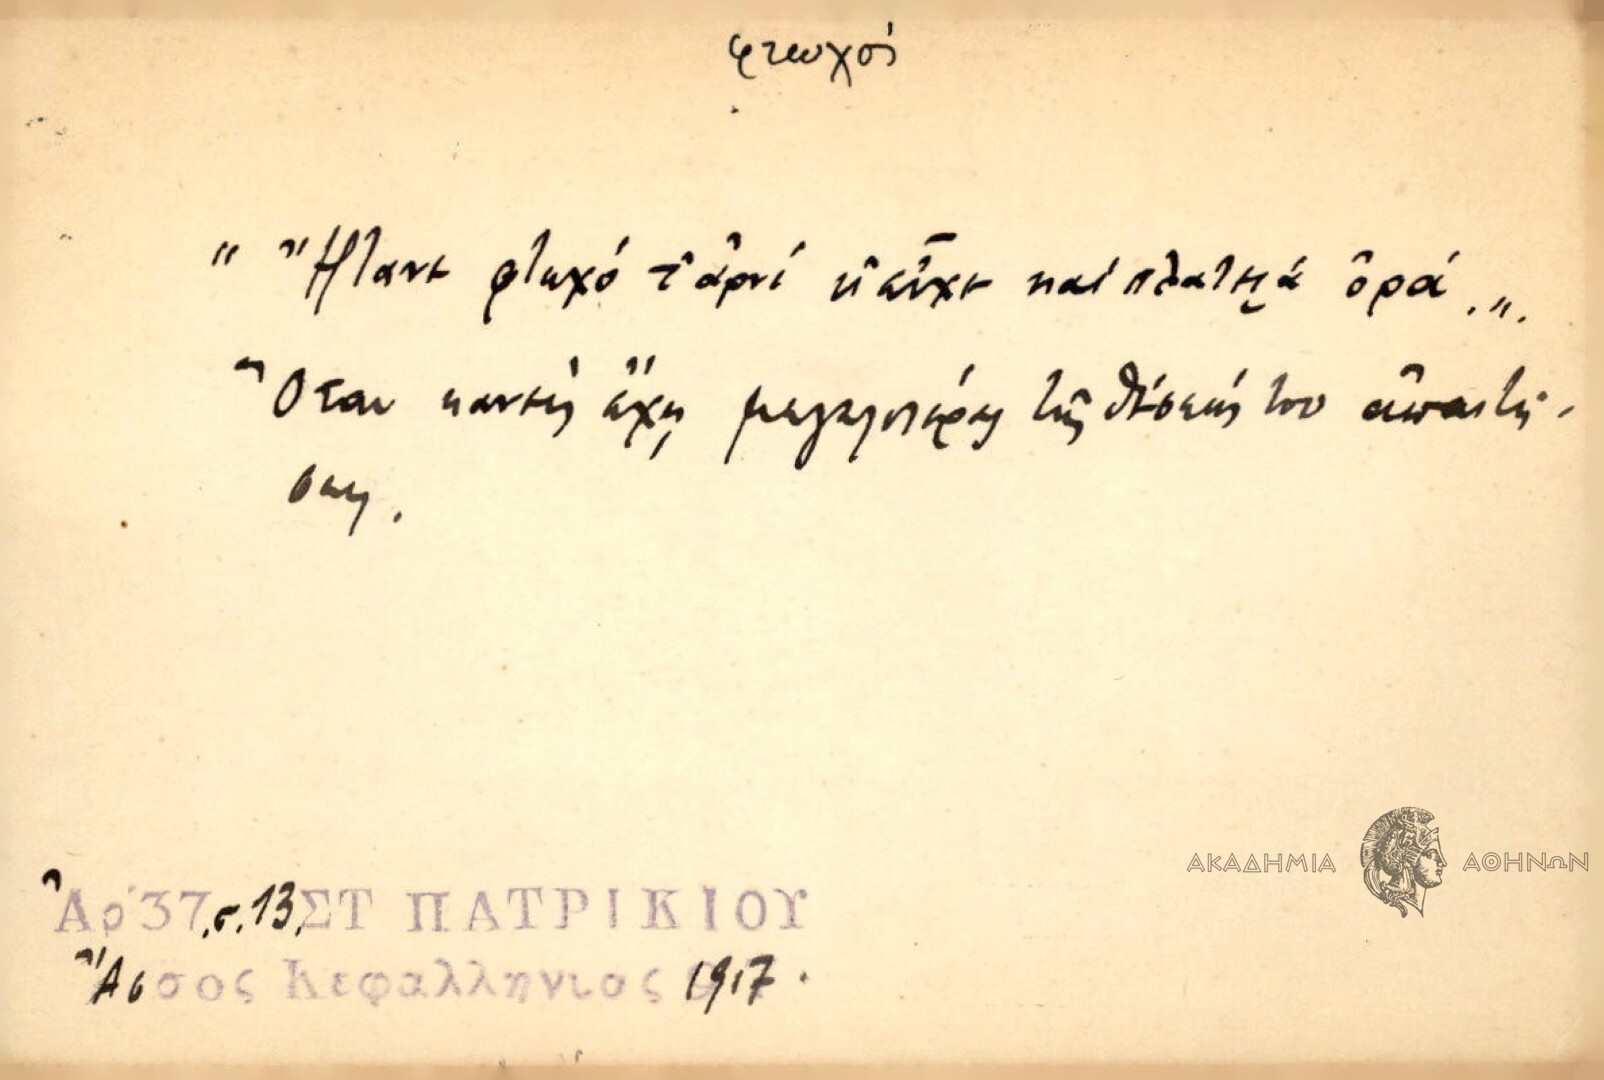 φτωχός
" Ἤτανε φτωχό τ' ἀρνί κ' εἶχε καί πλατειά ὀρά. ".
Ὅταν κανείς ἔχῃ μεγαλυτέρας τῆς θέσεώς του ἀπαιτή-
σεις.
Ἀρ 37, σ. 13, ΣΤ ΠΑΤΡΙΚΙΟΥ
Ἄσσος Κεφαλληνιας 1917.
ΑΚΑΔΗΜΙΑ ΑΘΗΝΩΝ